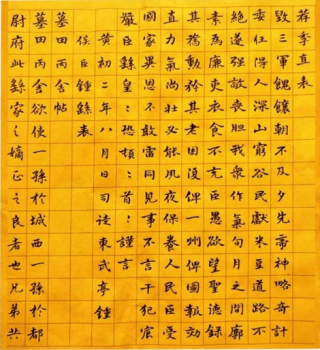 荐季直表
毀三軍餽饟朝不及夕先帝神略奇計
委任得人深山窮谷民獻米豆道路不
絕遂強敵喪膽我眾作氣旬月之間廓
素為廉吏衣食不充臣愚欲望聖德錄
其舊勳矜其老困復俾一州俾圖報效
直力氣尚壯必能夙夜保養人民臣受
國家異恩不敢雷同見事不言干犯宸
嚴臣繇皇〻恐〻頓〻首〻謹言
黃初二年八月日司徒東武亭鍾
侯臣繇表
墓田丙舍帖
墓田丙舍欲使一孫於城西一孫於都
尉府此繇家之嫡正之良者也兄弟共